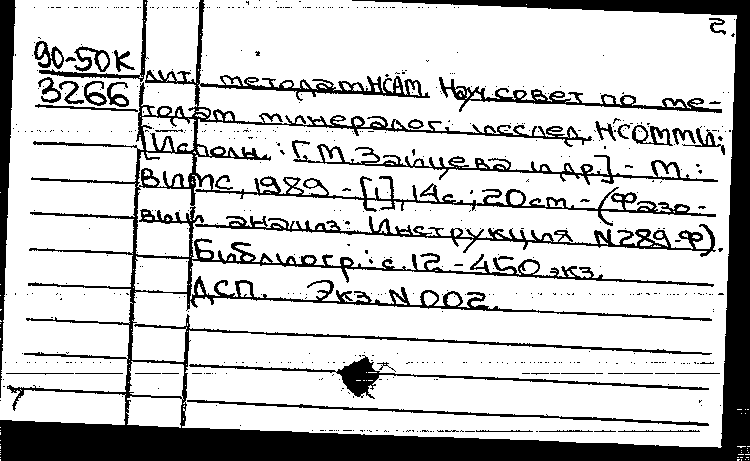 2.
90-50К
3266
лит. методам НСАМ. Науч. совет по ме-
тодам минералог. исслед. НСОММИ;
[Исполн.: Г.М. Зайцева и др.]. - М.:
ВИМС, 1989. - [1], 14 с.; 20 см. - (Фазо-
вый анализ: Инструкция N 289-Ф).
Библиогр.: с. 12. - 450 экз.
ДСП. Экз. N 002.